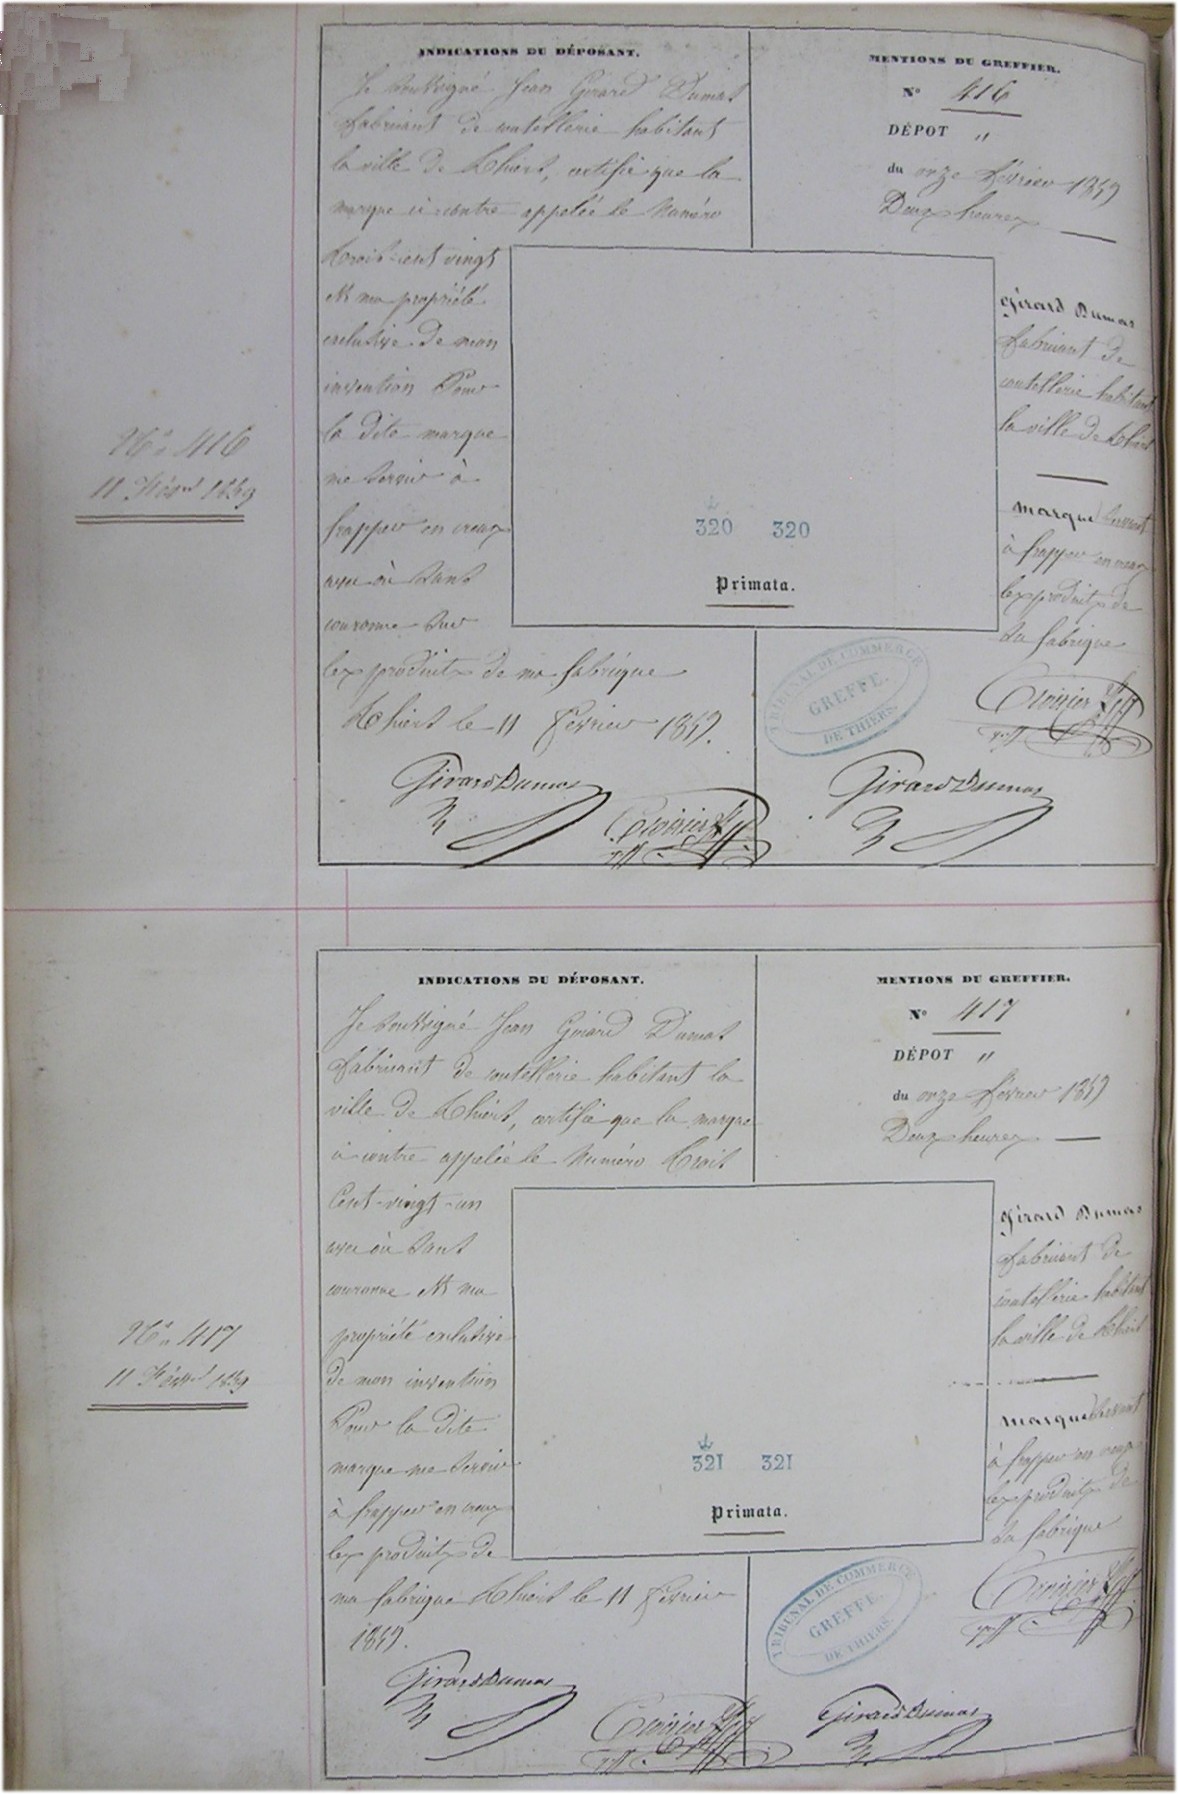 INDICATIONS DU DÉPOSANT.
Je soussigné Jean Girard Dumas
fabricant de coutellerie habitant
la ville de Thiers, certifie que la
marque ci contre appelée le Numéro
trois-cent vingt
est ma propriété
exclusive de mon
invention Pour
la dite marque
me servir à
frapper en creux
avec où sans
couronne sur
les produits de ma fabrique
Thiers le 11 février 1859.
Girard Dumas
MENTIONS DU GREFFIER.
N° 416
DÉPOT "
du onze février 1859
Deux heures
Girard Dumas
fabricant de
coutellerie habitant
la ville de Thiers
marque servant
à frapper en creux
les produits de
sa fabrique
320 320
Primata.
TRIBUNAL DE COMMERCE
GREFFE.
DE THIERS.
Girard Dumas
N° 416
11 Févr 1859
INDICATIONS DU DÉPOSANT.
Je soussigné Jean Girard Dumas
fabricant de coutellerie habitant la
ville de Thiers, certifie que la marque
ci contre appelée le Numéro trois
cent-vingt-un
avec où sans
couronne est ma
propriété exclusive
de mon invention
Pour la dite
marque me servir
à frapper en creux
les produits de
ma fabrique Thiers le 11 février
1859.
Girard Dumas
MENTIONS DU GREFFIER.
N° 417
DÉPOT "
du onze février 1859
Deux heures
Girard Dumas
fabricant de
coutellerie habitant
la ville de Thiers
marque servant
à frapper en creux
les produits de
sa fabrique
321 321
Primata.
TRIBUNAL DE COMMERCE
GREFFE.
DE THIERS.
Girard Dumas
N° 417
11 Févr 1859